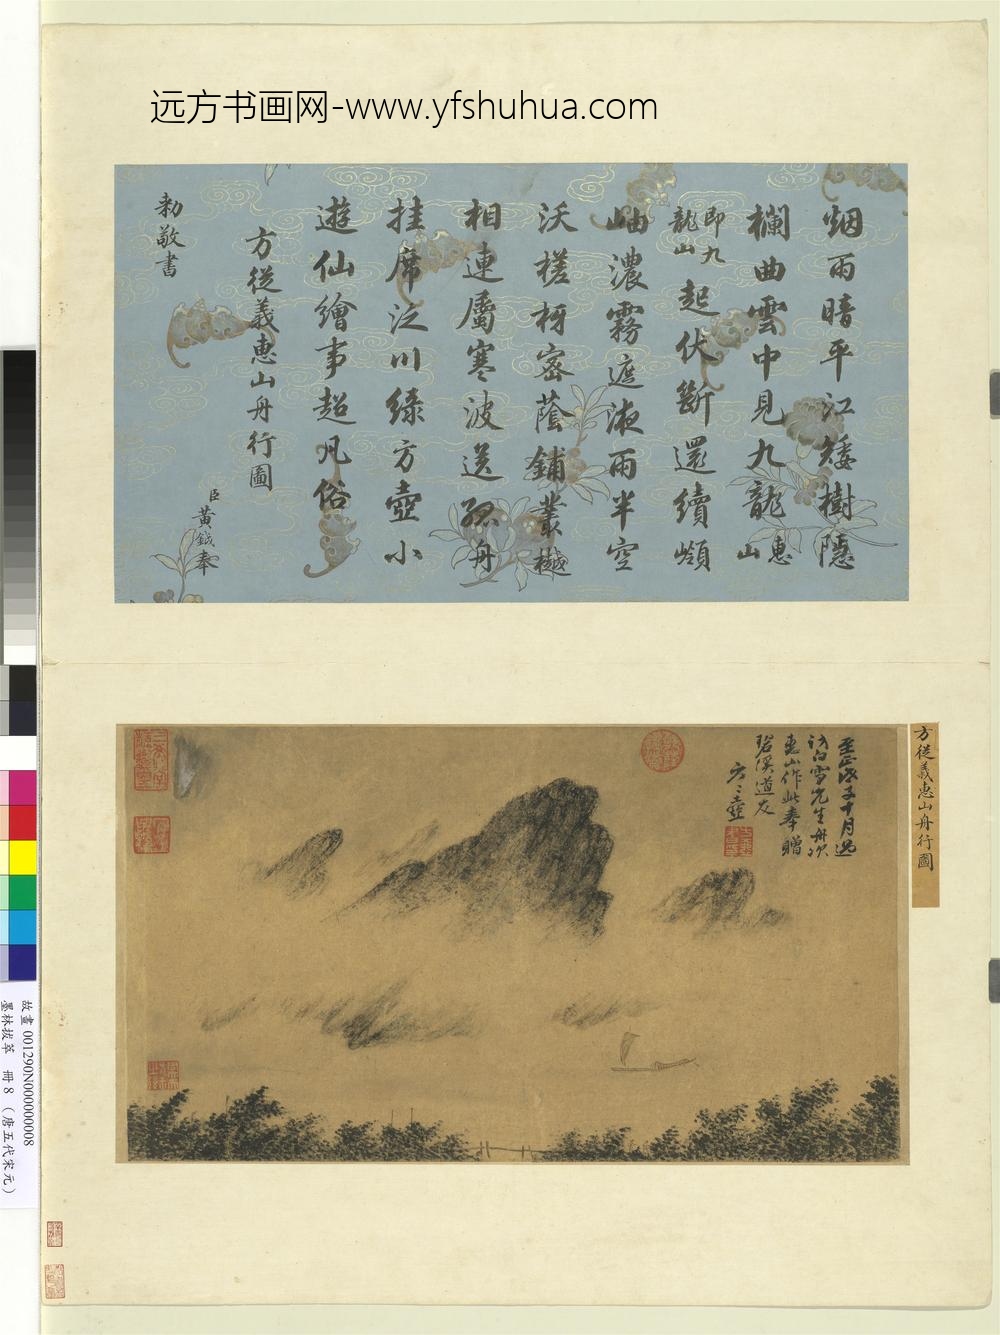 远方书画网-www.yfshuhua.com
烟雨暗平江矮樹隱
欄曲雲中見九龍惠
山
即九
龍山
起伏斷還續嶺
岫濃霧遮液雨半空
沃槎枒密蔭鋪叢樾
相連屬寒波送孤舟
挂席泛川綠方壺小
遊仙繪事超凡俗
方從義惠山舟行圖
臣黃鉞奉
勅敬書
方從義惠山舟行圖
至正戊子十月過
訪白雪先生舟次
惠山作此奉贈
碧溪道友
方方壺
故畫 001290N000000008
墨林拔萃 冊 8 (唐五代宋元)